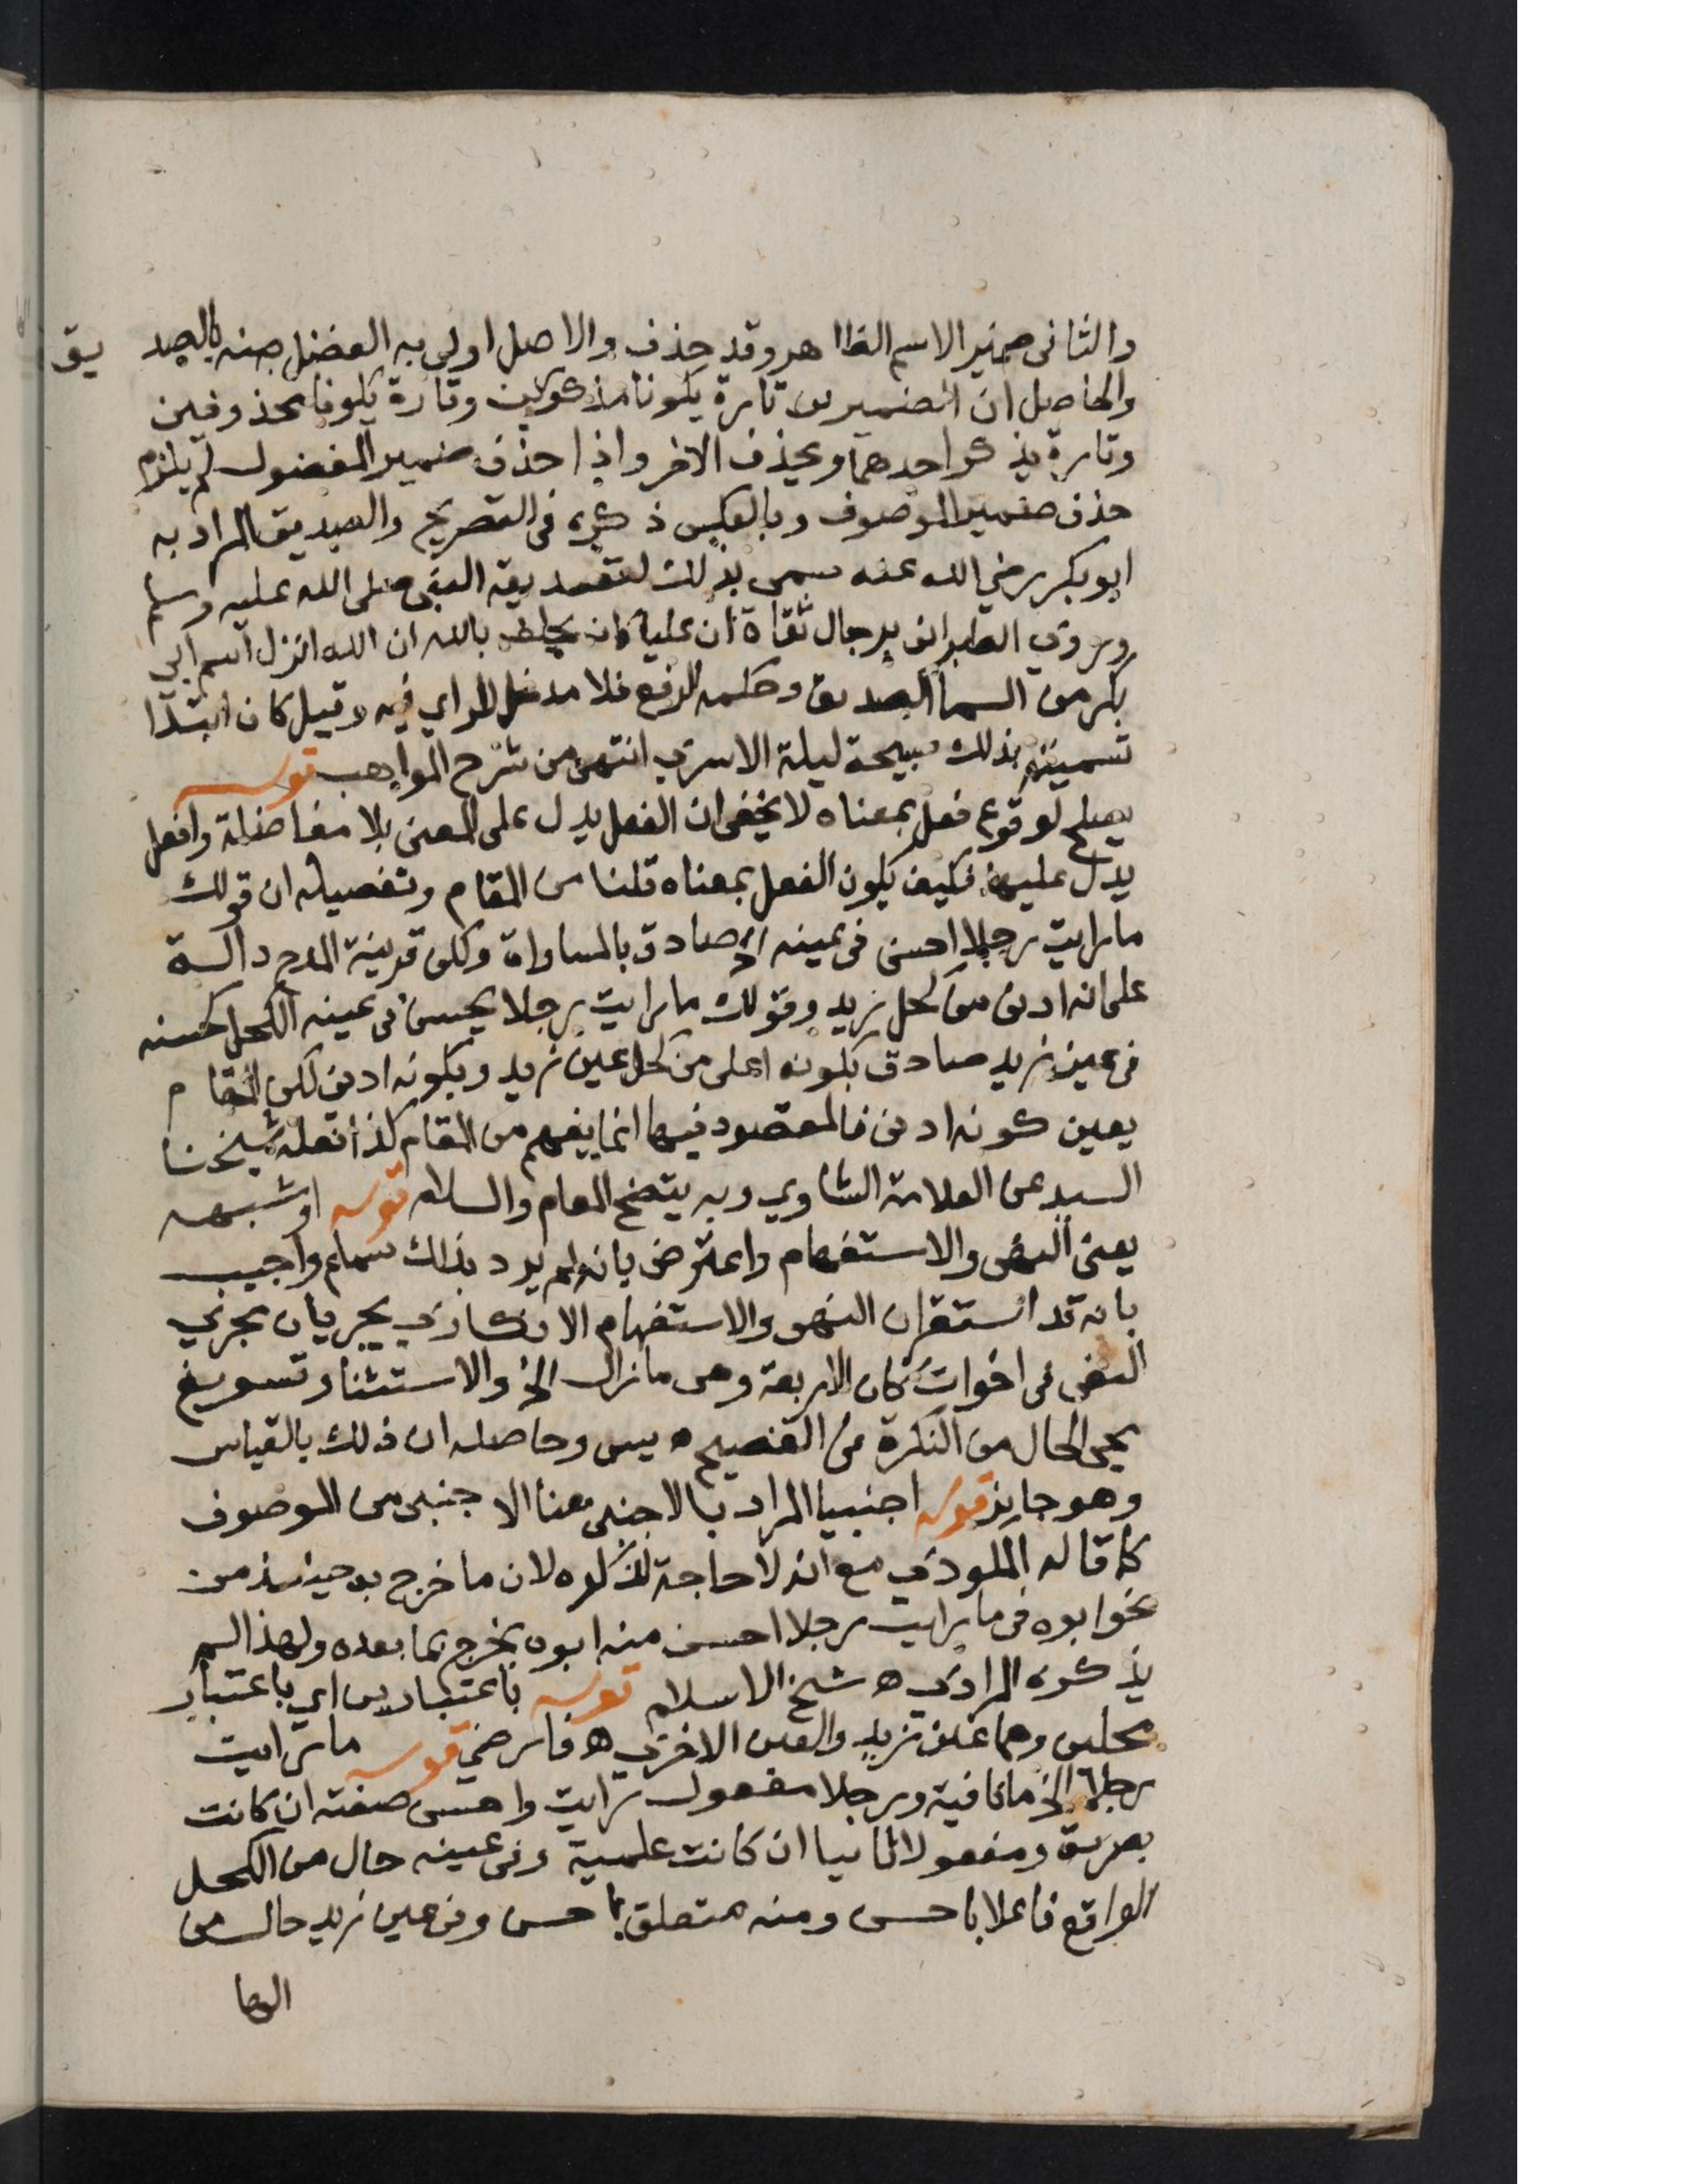 والثانى ضمير الاسم الظاهر وقد حذف والاصل اولى به الفضل منه بالصديق
والحاصل ان الضميرين تارة يكونا مذكورين وتارة يكونا محذوفين
وتارة يذكر احدهما ويحذف الاخر واذا حذف ضمير المفضول لم يلزم
حذف ضمير الموصوف وبالعكس ذكره فى التصريح والصديق المراد به
ابو بكر رضي الله عنه سمى بذلك لتصديقه النبى صلى الله عليه وسلم
وروى الطبرانى برجال ثقاة ان عليا كان يحلف بالله ان الله انزل اسم ابي
بكر من السما الصديق وحكمه الرفع فلا مدخل للراي فيه وقيل كان ابتدا
تسميته بذلك صبيحة ليلة الاسرى انتهى من شرح المواهب قوله
يصلح لوقوع فعل بمعناه لا يخفى ان الفعل يدل على المعنى بلا مفاضلة وافعل
يدل عليها فكيف يكون الفعل بمعناه قلنا من المقام وتفصيله ان قولك
ما رايت رجلا احسن فى عينه الخ صادق بالمساواة ولكن قرينة المدح دالة
على انه ادنى من كحل زيد وقولك ما رايت رجلا يحسن فى عينه الكحل كحسنه
فى عين زيد صادق بكونه اعلى من كحل عين زيد وبكونه ادنى لكن المقام
يعين كونه ادنى فالمقصود فيها انما يفهم من المقام كذا نقله شيخنا
السيد عن العلامة الشاوي وبه يتضح المقام والسلام قوله او شبهه
يعنى النهى والاستفهام واعترض بانه لم يرد بذلك سماع واجيب
بانه قد استقر ان النهى والاستفهام الانكارى يجريان مجرى
النفى فى اخوات كان الاربعة وهى ما زال الخ والاستثنا وتسويغ
مجى الحال من النكرة فى الفصيح ه يس وحاصله ان ذلك بالقياس
وهو جايز قوله اجنبيا المراد بالاجنبى هنا الاجنبى من الموصوف
كما قاله الملودى مع انه لا حاجة لذكره لان ما خرج به حينئذ من
نحو ابوه فى ما رايت رجلا احسن منه ابوه يخرج بما بعده ولهذا لم
يذكره المرادى ه شيخ الاسلام قوله باعتبارين اي باعتبار
محلين وهما عين زيد والعين الاخرى ه فارضي قوله ما رايت
رجلا الخ ما نافية ورجلا مفعول رايت واحسن صفته ان كانت
بصرية ومفعولا ثانيا ان كانت علمية وفى عينه حال من الكحل
الواقع فاعلا باحسن ومنه متعلق باحسن وفى عين زيد حال من
الها